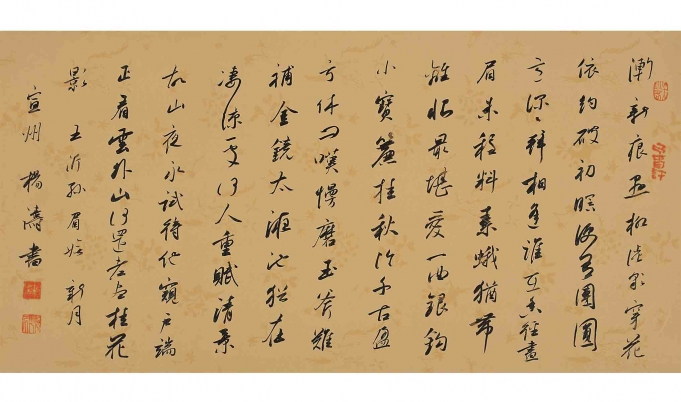 漸新痕懸柳淡彩穿花
依約破初暝便有團圓
意深深拜相逢誰在香徑畫
眉未穩料素娥猶帶
離恨最堪愛一曲銀鉤
小寶簾挂秋冷千古盈
虧休問嘆慢磨玉斧難
補金鏡太液池猶在
淒涼處何人重賦清景
故山夜永試待他窺戶端
正看雲外山河還老盡桂花
影 王沂孫眉嫵 新月
宣州楊濤書